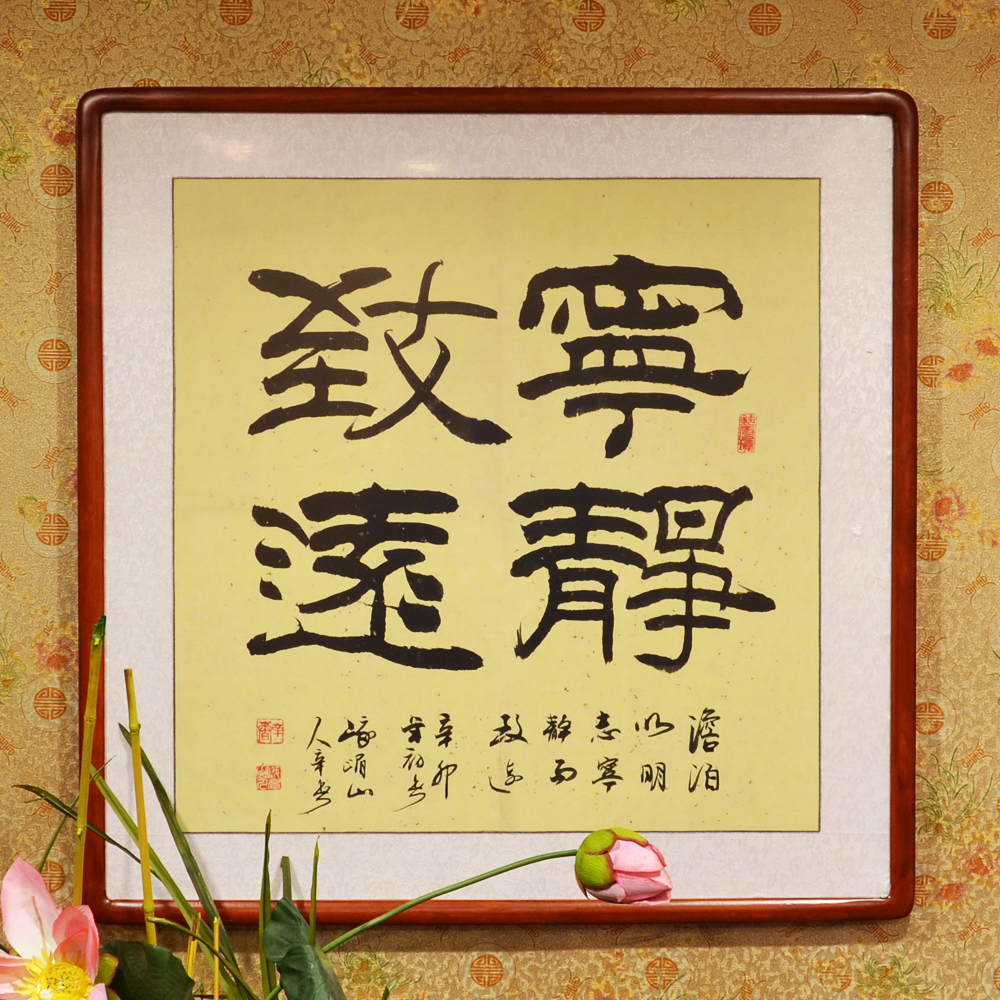 寧靜
致遠
澹泊
以明
志寧
靜而
致遠
辛卯
年初秋
峨嵋山
人辛書